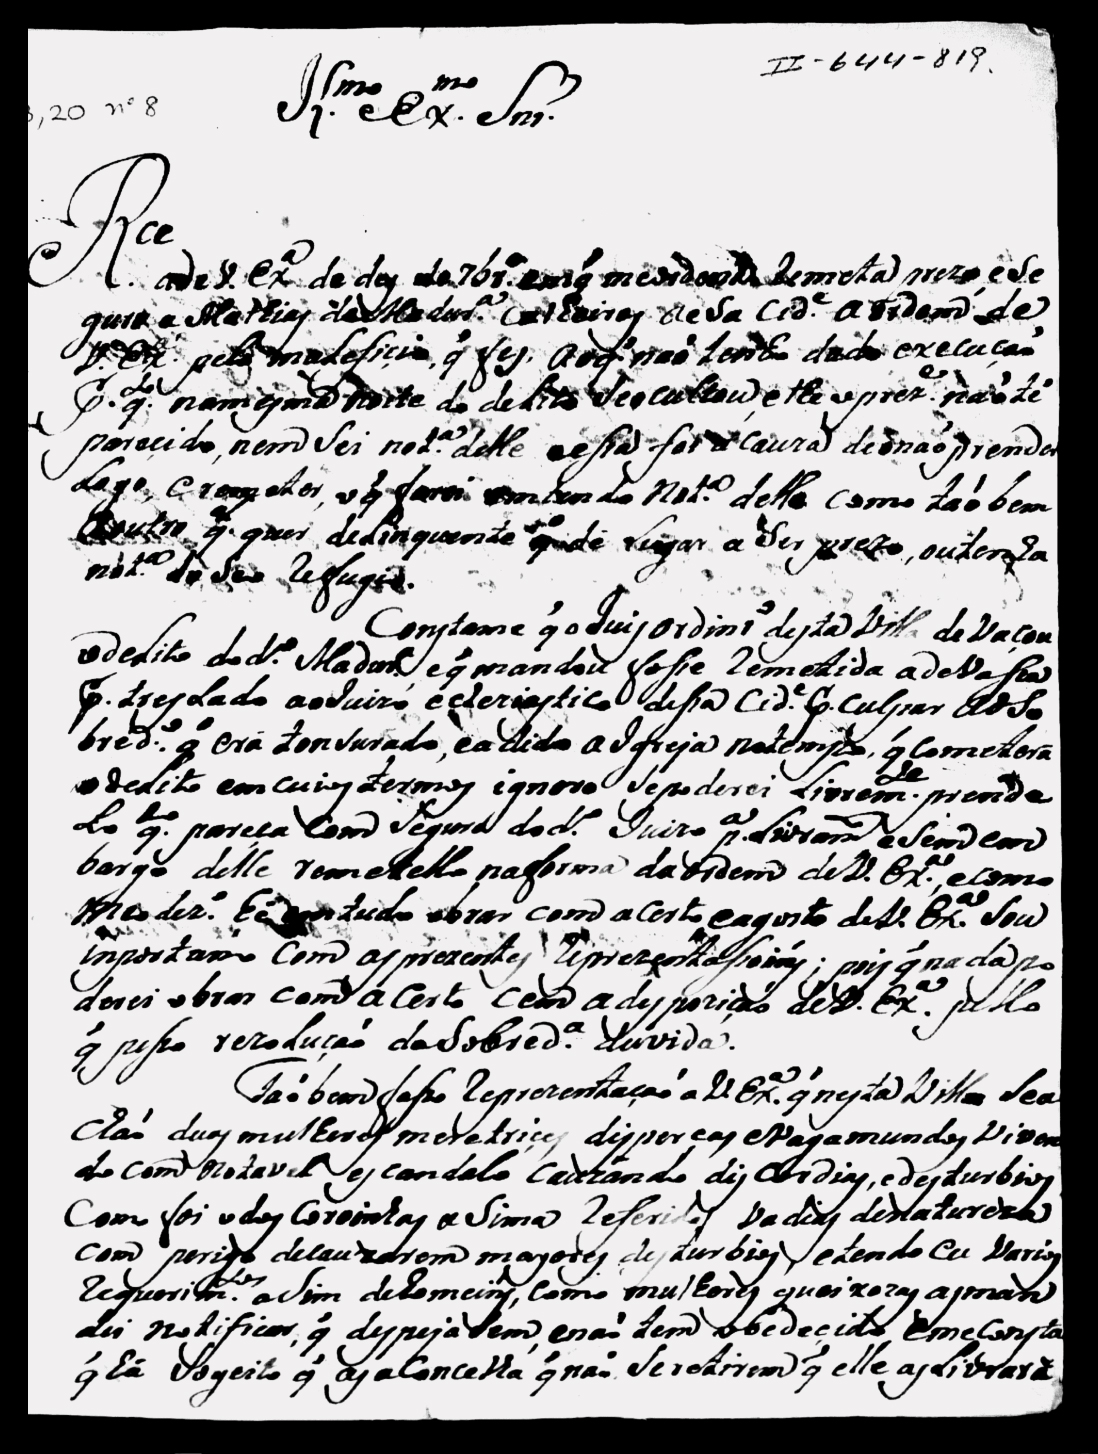 II-644-819.
Il.mo e Ex.mo Snr.
3,20 nº 8
Rce
a de V. Ex.ª de des de 7br.º em q̃ me ordena Remeta prezo e se
guro a Mathias de Madur.ª Calheiros a esa Cid.e a ordem de
V. Ex.ª pelo maleficio, q̃ fes, a q̃ não tenho dado execução
P. q.do na mesma noite do delito se ocultou, e the o prez.e não tẽ
parecido, nem sei not.ª delle e esta foi a cauza de o não prender
logo, e remeter, o q̃ farei em tendo not.ª delle como tão bem
a outro q.l quer delinquente q̃ dé lugar a ser prezo, ou tenha
not.ª do seo Refugio.
Constame q̃ o Juis ordinr.º desta Villa devaçou
o delito do d.º Madur.ª e q̃ mandou fosse Remetida a devassa
P. treslado ao Juizo ecleziastico dessa Cid.e P. culpar ao So
bred.º q̃ era tonsurado, e adido a Igreja no tempo, q̃ cometera
o delito em cujos termos ignoro se poderei Livrem.te prende
lo q.do pareça com Segura do d.º Juizo p.ª Livram.to e sem em
bargo delle remetello na forma da ordem de V. Ex.ª, e como
meo dez.º hé em tudo obrar com acerto e agosto de V. Ex.ª Sou
inportuno com as prezentes Reprezentasoins; pois q̃ nada po
derei obrar com acerto sem a despozição de V. Ex.ª pello
q̃ pesso rezolução da Sobred.ª duvida.
Tão bem fasso Reprezentação a V. Ex.ª q̃ nesta Villa se a
chão duas mulheres meretrices disperças e Vagamundas Viven
do com notavel escandalo cauzando discordias, e desturbios
Como foi o dos Coroinhas a Sima Referidos Vadias de natureza
com perigo de cauzarem mayores desturbios, e tendo eu Varios
Requerim.tos a Sim de homeins, como mulheres queixozas as man
dei notificar, q̃ despejasem, e não tem obedecido, e me Consta
q̃ há Sogeito q̃ as aConcelha q̃ não se retirem q̃ elle as Livrará